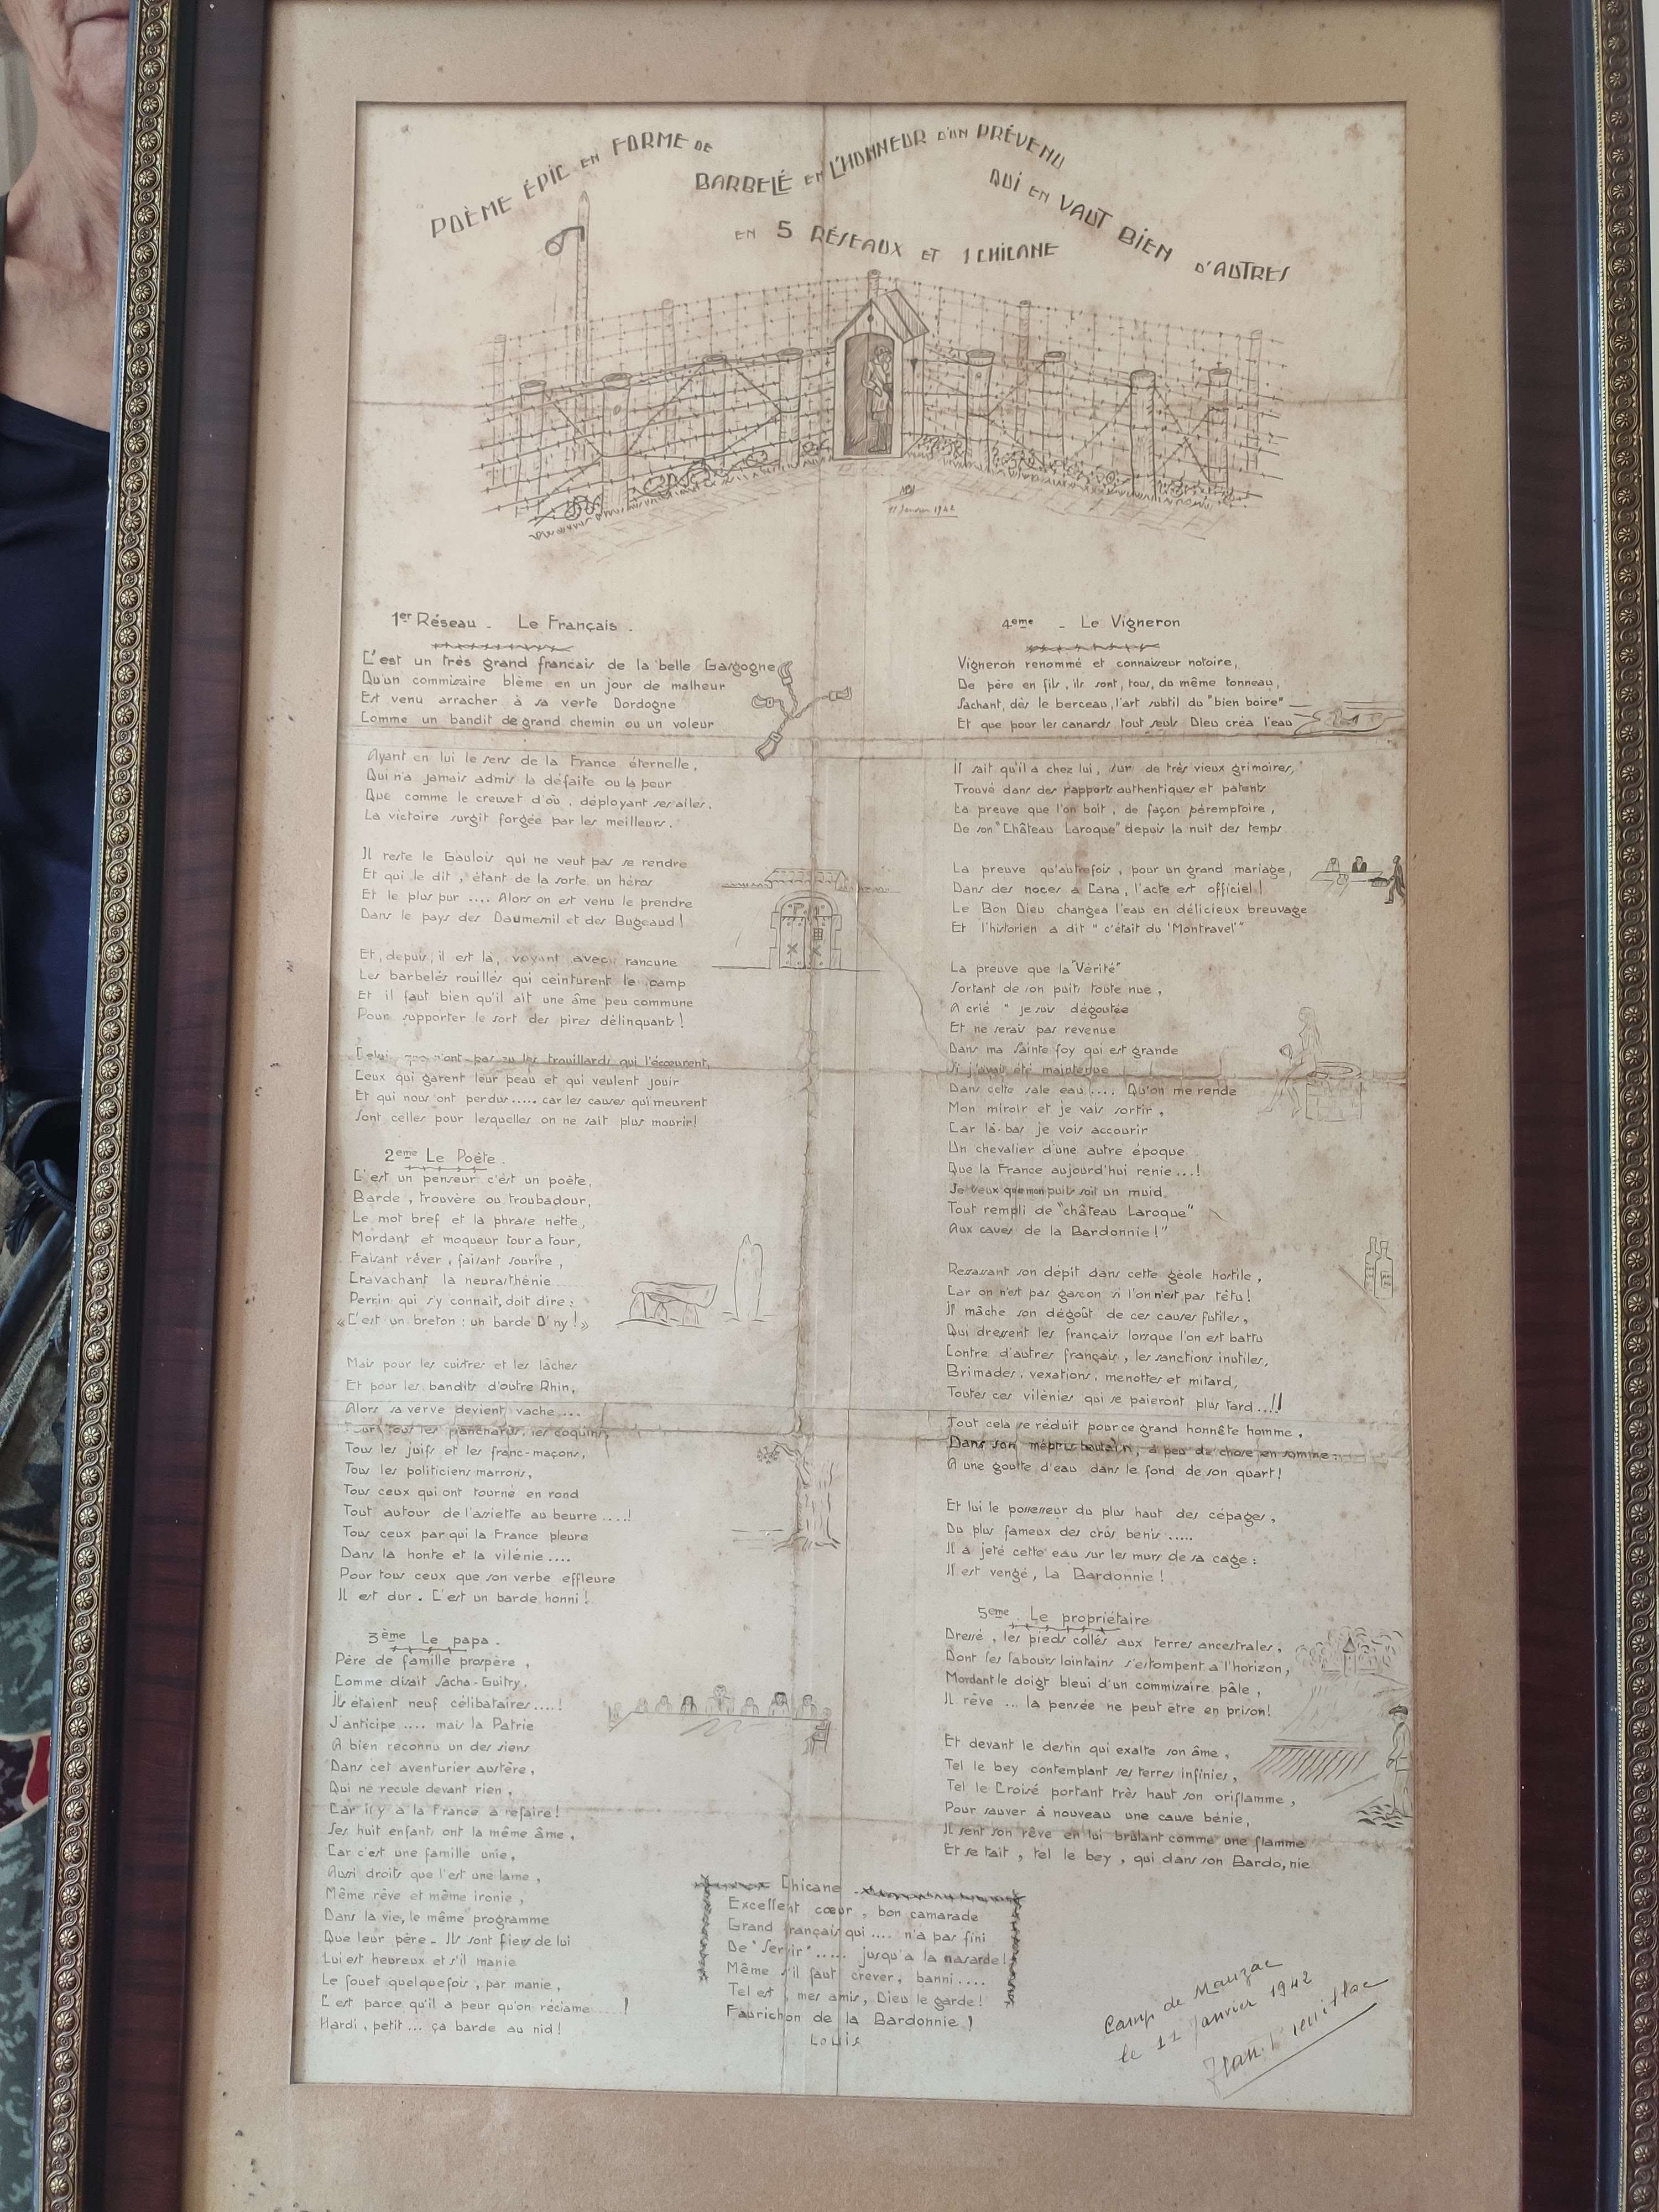 POÈME ÉPIC EN FORME DE
BARBELÉ EN L'HONNEUR D'UN PRÉVENU
QUI EN VAUT BIEN D'AUTRES
EN 5 RÉSEAUX ET 1 CHICANE
11 Janvier 1942
1er Réseau - Le Français.
C'est un très grand francais de la belle Gasgogne
Qu'un commissaire blème en un jour de malheur
Est venu arracher à sa verte Dordogne
Comme un bandit de grand chemin ou un voleur
Ayant en lui le sens de la France éternelle,
Qui n'a jamais admis la défaite ou la peur
Que comme le creuset d'où, déployant ses ailes,
La victoire surgit forgée par les meilleurs.
Il reste le Gaulois qui ne veut pas se rendre
Et qui le dit, étant de la sorte un héros
Et le plus pur .... Alors on est venu le prendre
Dans le pays des Daumesnil et des Bugeaud !
Et, depuis, il est là, voyant avec rancune
Les barbelés rouillés qui ceinturent le camp
Et il faut bien qu'il ait une âme peu commune
Pour supporter le sort des pires délinquants !
Celui que n'ont pas eu les trouillards qui l'écœurent,
Ceux qui garent leur peau et qui veulent jouir
Et qui nous ont perdus ..... car les causes qui meurent
Sont celles pour lesquelles on ne sait plus mourir !
2eme Le Poète.
C'est un penseur c'est un poète,
Barde, trouvère ou troubadour,
Le mot bref et la phrase nette,
Mordant et moqueur tour a tour,
Faisant rêver, faisant sourire,
Cravachant la neurasthénie
Perrin qui s'y connait, doit dire :
« C'est un breton : un barde D'ny ! »
Mais pour les cuistres et les lâches
Et pour les bandits d'outre Rhin,
Alors sa verve devient vache ....
Pour tous les planchards, les coquins,
Tous les juifs et les franc-maçons,
Tous les politiciens marrons,
Tous ceux qui ont tourné en rond
Tout autour de l'assiette au beurre ....!
Tous ceux par qui la France pleure
Dans la honte et la vilénie ....
Pour tous ceux que son verbe effleure
Il est dur. C'est un barde honni !
3ème Le papa.
Père de famille prospère,
Comme disait Sacha-Guitry,
Ils étaient neuf célibataires ....!
J'anticipe .... mais la Patrie
A bien reconnu un des siens
Dans cet aventurier austère,
Qui ne recule devant rien,
Car il y a la France a refaire !
Ses huit enfants ont la même âme,
Car c'est une famille unie,
Aussi droits que l'est une lame,
Même rêve et même ironie,
Dans la vie, le même programme
Que leur père - Ils sont fiers de lui
Lui est heureux et s'il manie
Le fouet quelquefois, par manie,
C'est parce qu'il a peur qu'on réclame ....!
Hardi, petit ... ça barde au nid !
4eme - Le Vigneron
Vigneron renommé et connaisseur notoire,
De père en fils, ils sont, tous, du même tonneau,
Sachant, dès le berceau, l'art subtil du "bien boire"
Et que pour les canards tout seuls Dieu créa l'eau
Il sait qu'il a chez lui, sur de très vieux grimoires,
Trouvé dans des rapports authentiques et patents
La preuve que l'on boit, de façon péremptoire,
De son "Château Laroque" depuis la nuit des temps
La preuve qu'autrefois, pour un grand mariage,
Dans des noces a Cana, l'acte est officiel !
Le Bon Dieu changea l'eau en délicieux breuvage
Et l'historien a dit "c'était du 'Montravel'"
La preuve que la "Vérité"
Sortant de son puits toute nue,
A crié "je suis dégoutée
Et ne serais pas revenue
Dans ma Sainte foy qui est grande
Si j'avais été maintenue
Dans cette sale eau .... Qu'on me rende
Mon miroir et je vais sortir,
Car là-bas je vois accourir
Un chevalier d'une autre époque
Que la France aujourd'hui renie ...!
Je veux que mon puits soit un muid
Tout rempli de "château Laroque"
Aux caves de la Bardonnie !"
Ressassant son dépit dans cette geôle hostile,
Car on n'est pas gascon si l'on n'est pas têtu !
Il mâche son dégoût de ces causes futiles,
Qui dressent les français lorsque l'on est battu
Contre d'autres français, les sanctions inutiles,
Brimades, vexations, menottes et mitard,
Toutes ces vilénies qui se paieront plus tard ...!!
Tout cela se réduit pour ce grand honnête homme,
Dans son mépris hautain, à peu de chose en somme :
A une goutte d'eau dans le fond de son quart !
Et lui le possesseur du plus haut des cépages,
Du plus fameux des crûs benis .....
Il a jeté cette eau sur les murs de sa cage :
Il est vengé, La Bardonnie !
5eme. Le propriétaire
Dressé, les pieds collés aux terres ancestrales,
Dont les labours lointains s'estompent a l'horizon,
Mordant le doigt bleui d'un commissaire pâle,
Il rêve ... la pensée ne peut être en prison !
Et devant le destin qui exalte son âme,
Tel le bey contemplant ses terres infinies,
Tel le Croisé portant très haut son oriflamme,
Pour sauver à nouveau une cause bénie,
Il sent son rêve en lui brûlant comme une flamme
Et se tait, tel le bey, qui dans son Bardo, nie
Chicane
Excellent cœur, bon camarade
Grand français qui .... n'a pas fini
De "Servir" ..... jusqu'a la nasarde !
Même s'il faut crever, banni ....
Tel est, mes amis, Dieu le garde !
Faurichon de la Bardonnie !
Louis
Camp de Mauzac
le 11 Janvier 1942